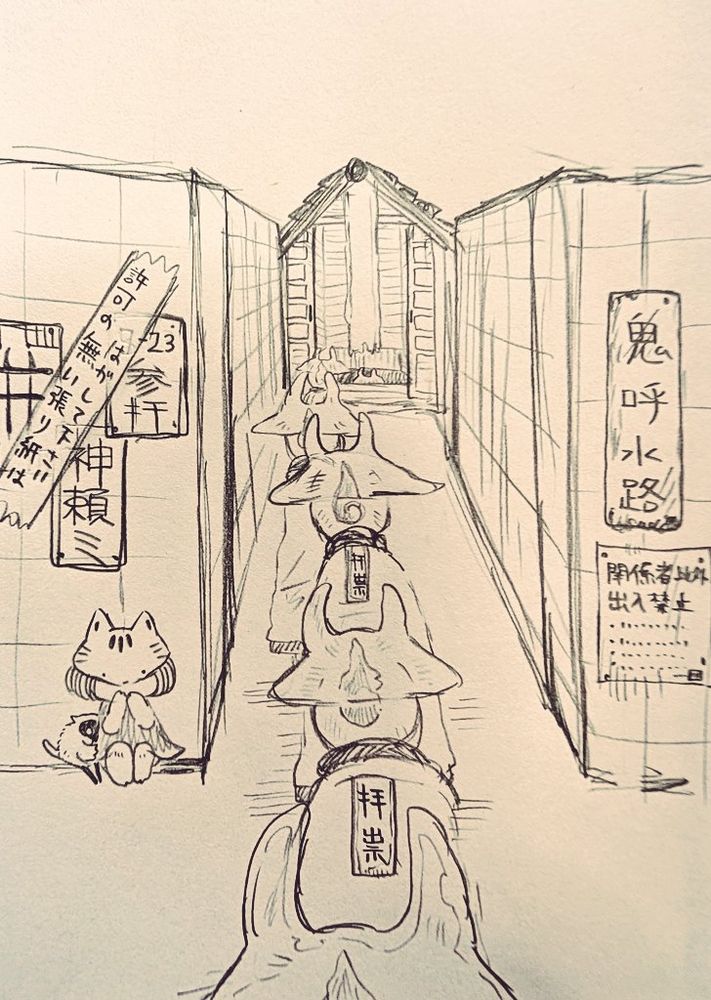 許可の無い張り紙は
はがして下さい
井
-23
参拝
神頼ミ
鬼呼水路
関係者以外
出入禁止
拝祟
拝祟